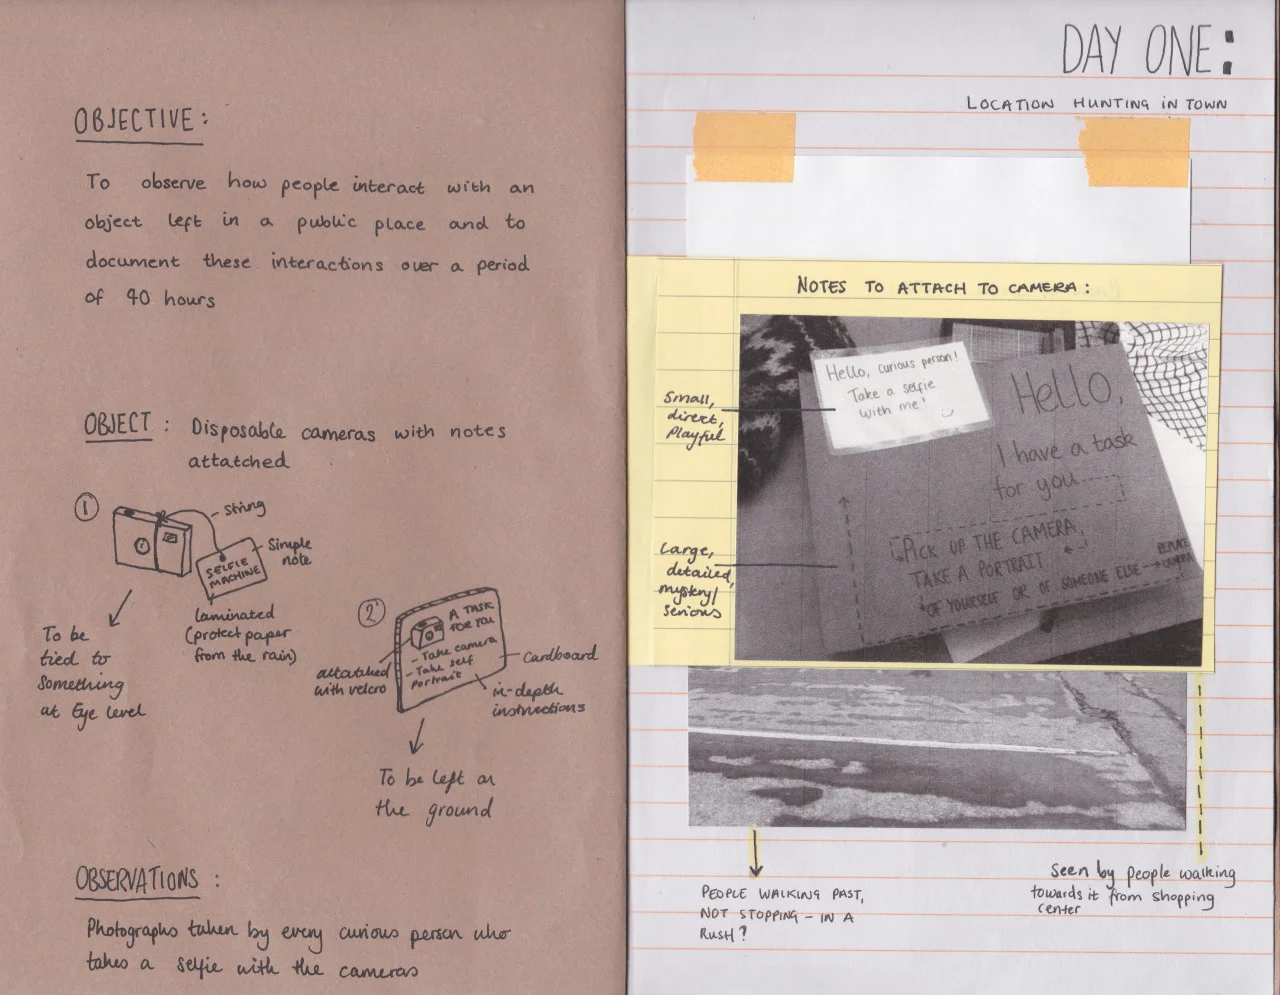 OBJECTIVE:
To observe how people interact with an
object left in a public place and to
document these interactions over a period
of 40 hours
OBJECT : Disposable cameras with notes
attatched
1
string
Simple
note
SELFIE
MACHINE
laminated
(protect paper
from the rain)
To be
tied to
something
at Eye level
2
A TASK
FOR YOU
- Take camera
- Take self
portrait
attatched
with velcro
Cardboard
in-depth
instructions
To be left on
the ground
OBSERVATIONS :
Photographs taken by every curious person who
takes a selfie with the cameras
DAY ONE:
LOCATION HUNTING IN TOWN
NOTES TO ATTACH TO CAMERA:
Small,
direct,
Playful
Hello, curious person!
Take a selfie
with me!
Hello,
I have a task
for you
Large,
detailed,
mystery/
serious
PICK UP THE CAMERA,
TAKE A PORTRAIT
OF YOURSELF OR OF SOMEONE ELSE
REPLACE
CAMERA
PEOPLE WALKING PAST,
NOT STOPPING - IN A
RUSH?
Seen by people walking
towards it from shopping
center